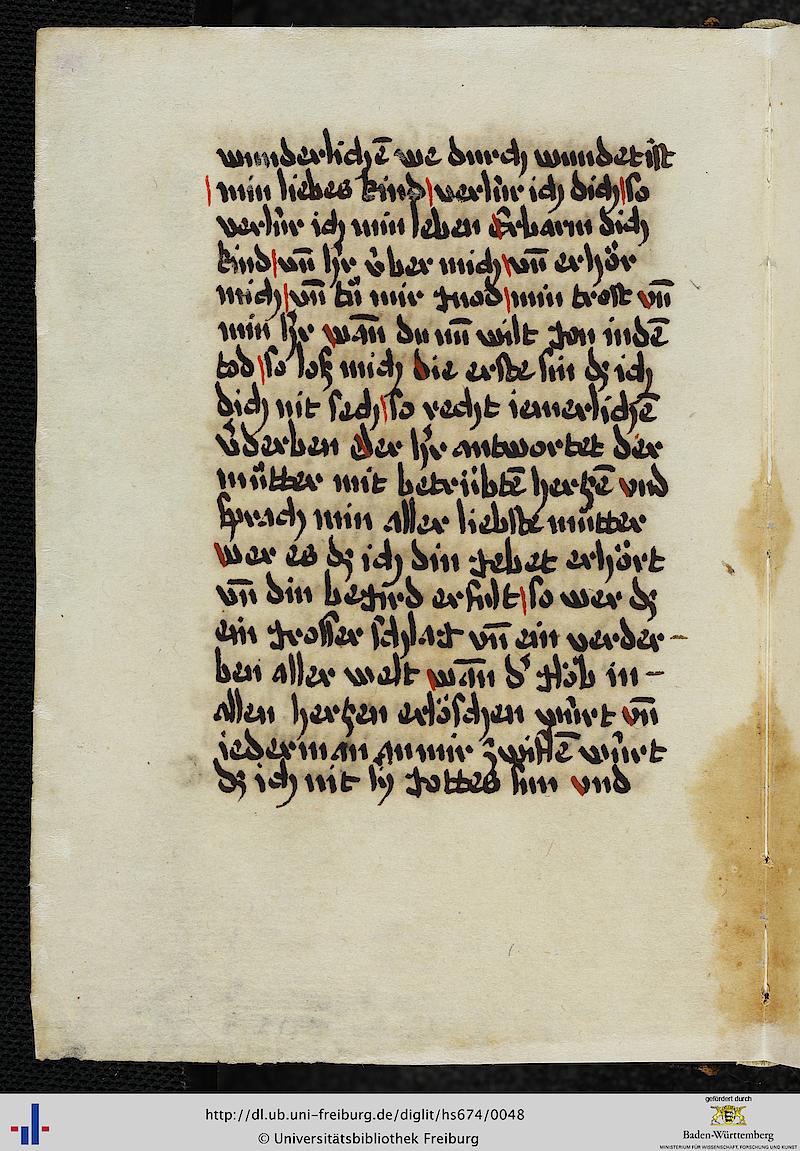 wunderlichē we durch wundet ist
min liebes kind verlúr ich dich so
verlúr ich min leben Erbarm dich
kind vn̄ hr̄ v́ber mich vn̄ erhör
mich vn̄ tů mir gnod min trost vn̄
min hr̄ wan̄ du nun wilt gon in dē
tod so losz mich die erste sin dz ich
dich nit sech so recht iemerlichē
v́derben Der hr̄ antwortet der
můtter mit betrübtē hertzē vnd
sprach min aller liebste můtter
wer es dz ich din gebet erhört
vn̄ din begird erfult so wer dz
ein grosser schlag vn̄ ein verder
ben aller welt wan̄ d' glöb in
allen hertzen erlöschen wúrt vn̄
iederman an mir zwiflē wúrt
dz ich nit sy gottes sun vnd
http://dl.ub.uni-freiburg.de/diglit/hs674/0048
© Universitätsbibliothek Freiburg
gefördert durch
Baden-Württemberg
MINISTERIUM FÜR WISSENSCHAFT, FORSCHUNG UND KUNST